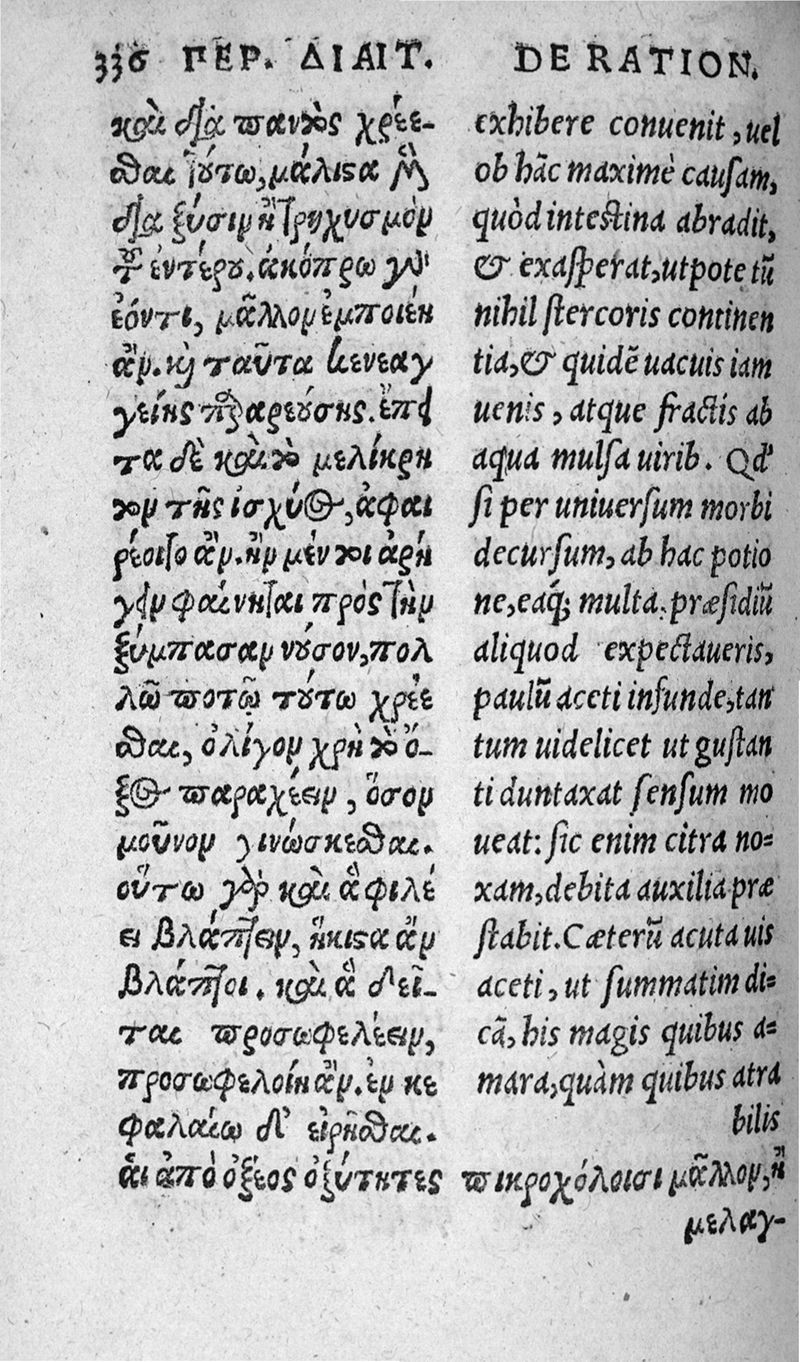 336 ΠΕΡ. ΔΙΑΙΤ.
καὶ διὰ παντὸς χρέε-
σθαι τούτῳ, μάλιστα μὲν
διὰ ξύσιν ἢ τρηχυσμὸν
τοῦ ἐντέρου. ἀκόπρῳ γὰρ
ἐόντι, μᾶλλον ἐμποιέη
ἂν. καὶ ταῦτα κενεαγ
γείης παρεούσης. ἔπει
τα δὲ καὶ τὸ μελίκρη
τον τῆς ἰσχύος, ἀφαι
ρέοιτο ἂν. ἢν μέν τοι ἀρή
γειν φαίνηται πρὸς τὴν
ξύμπασαν νοῦσον, πολ
λῷ ποτῷ τούτῳ χρέε
σθαι, ὀλίγον χρὴ τὸ ὄ-
ξος παραχέειν, ὅσον
μοῦνον γινώσκεσθαι.
οὕτω γὰρ καὶ ἃ φιλέ
ει βλάπτειν, ἥκιστα ἂν
βλάπτοι. καὶ ἃ δεῖ-
ται προσωφελέειν,
προσωφελοίη ἂν. ἐν κε
φαλαίῳ δ' εἰρῆσθαι.
αἱ ἀπὸ ὄξεος ὀξύτητες πικροχόλοισι μᾶλλον, ἢ
μελαγ-
DE RATION.
exhibere conuenit, uel
ob hãc maximè cauſam,
quòd inteſtina abradit,
& exaſperat, utpote tũ
nihil ſtercoris continen
tia, & quidẽ uacuis iam
uenis, atque fractis ab
aqua mulſa uirib. Qd'
ſi per uniuerſum morbi
decurſum, ab hac potio
ne, eaq́; multa, præſidiũ
aliquod expectaueris,
paulũ aceti infunde, tan
tum uidelicet ut guſtan
ti duntaxat ſenſum mo
ueat: ſic enim citra no=
xam, debita auxilia præ
ſtabit. Cæterũ acuta uis
aceti, ut ſummatim di=
cã, his magis quibus a=
mara, quàm quibus atra
bilis